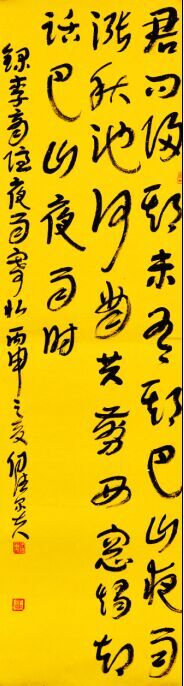 君问归期未有期巴山夜雨
涨秋池何当共剪西窗烛却
话巴山夜雨时
录李商隐夜雨寄北丙申之夏